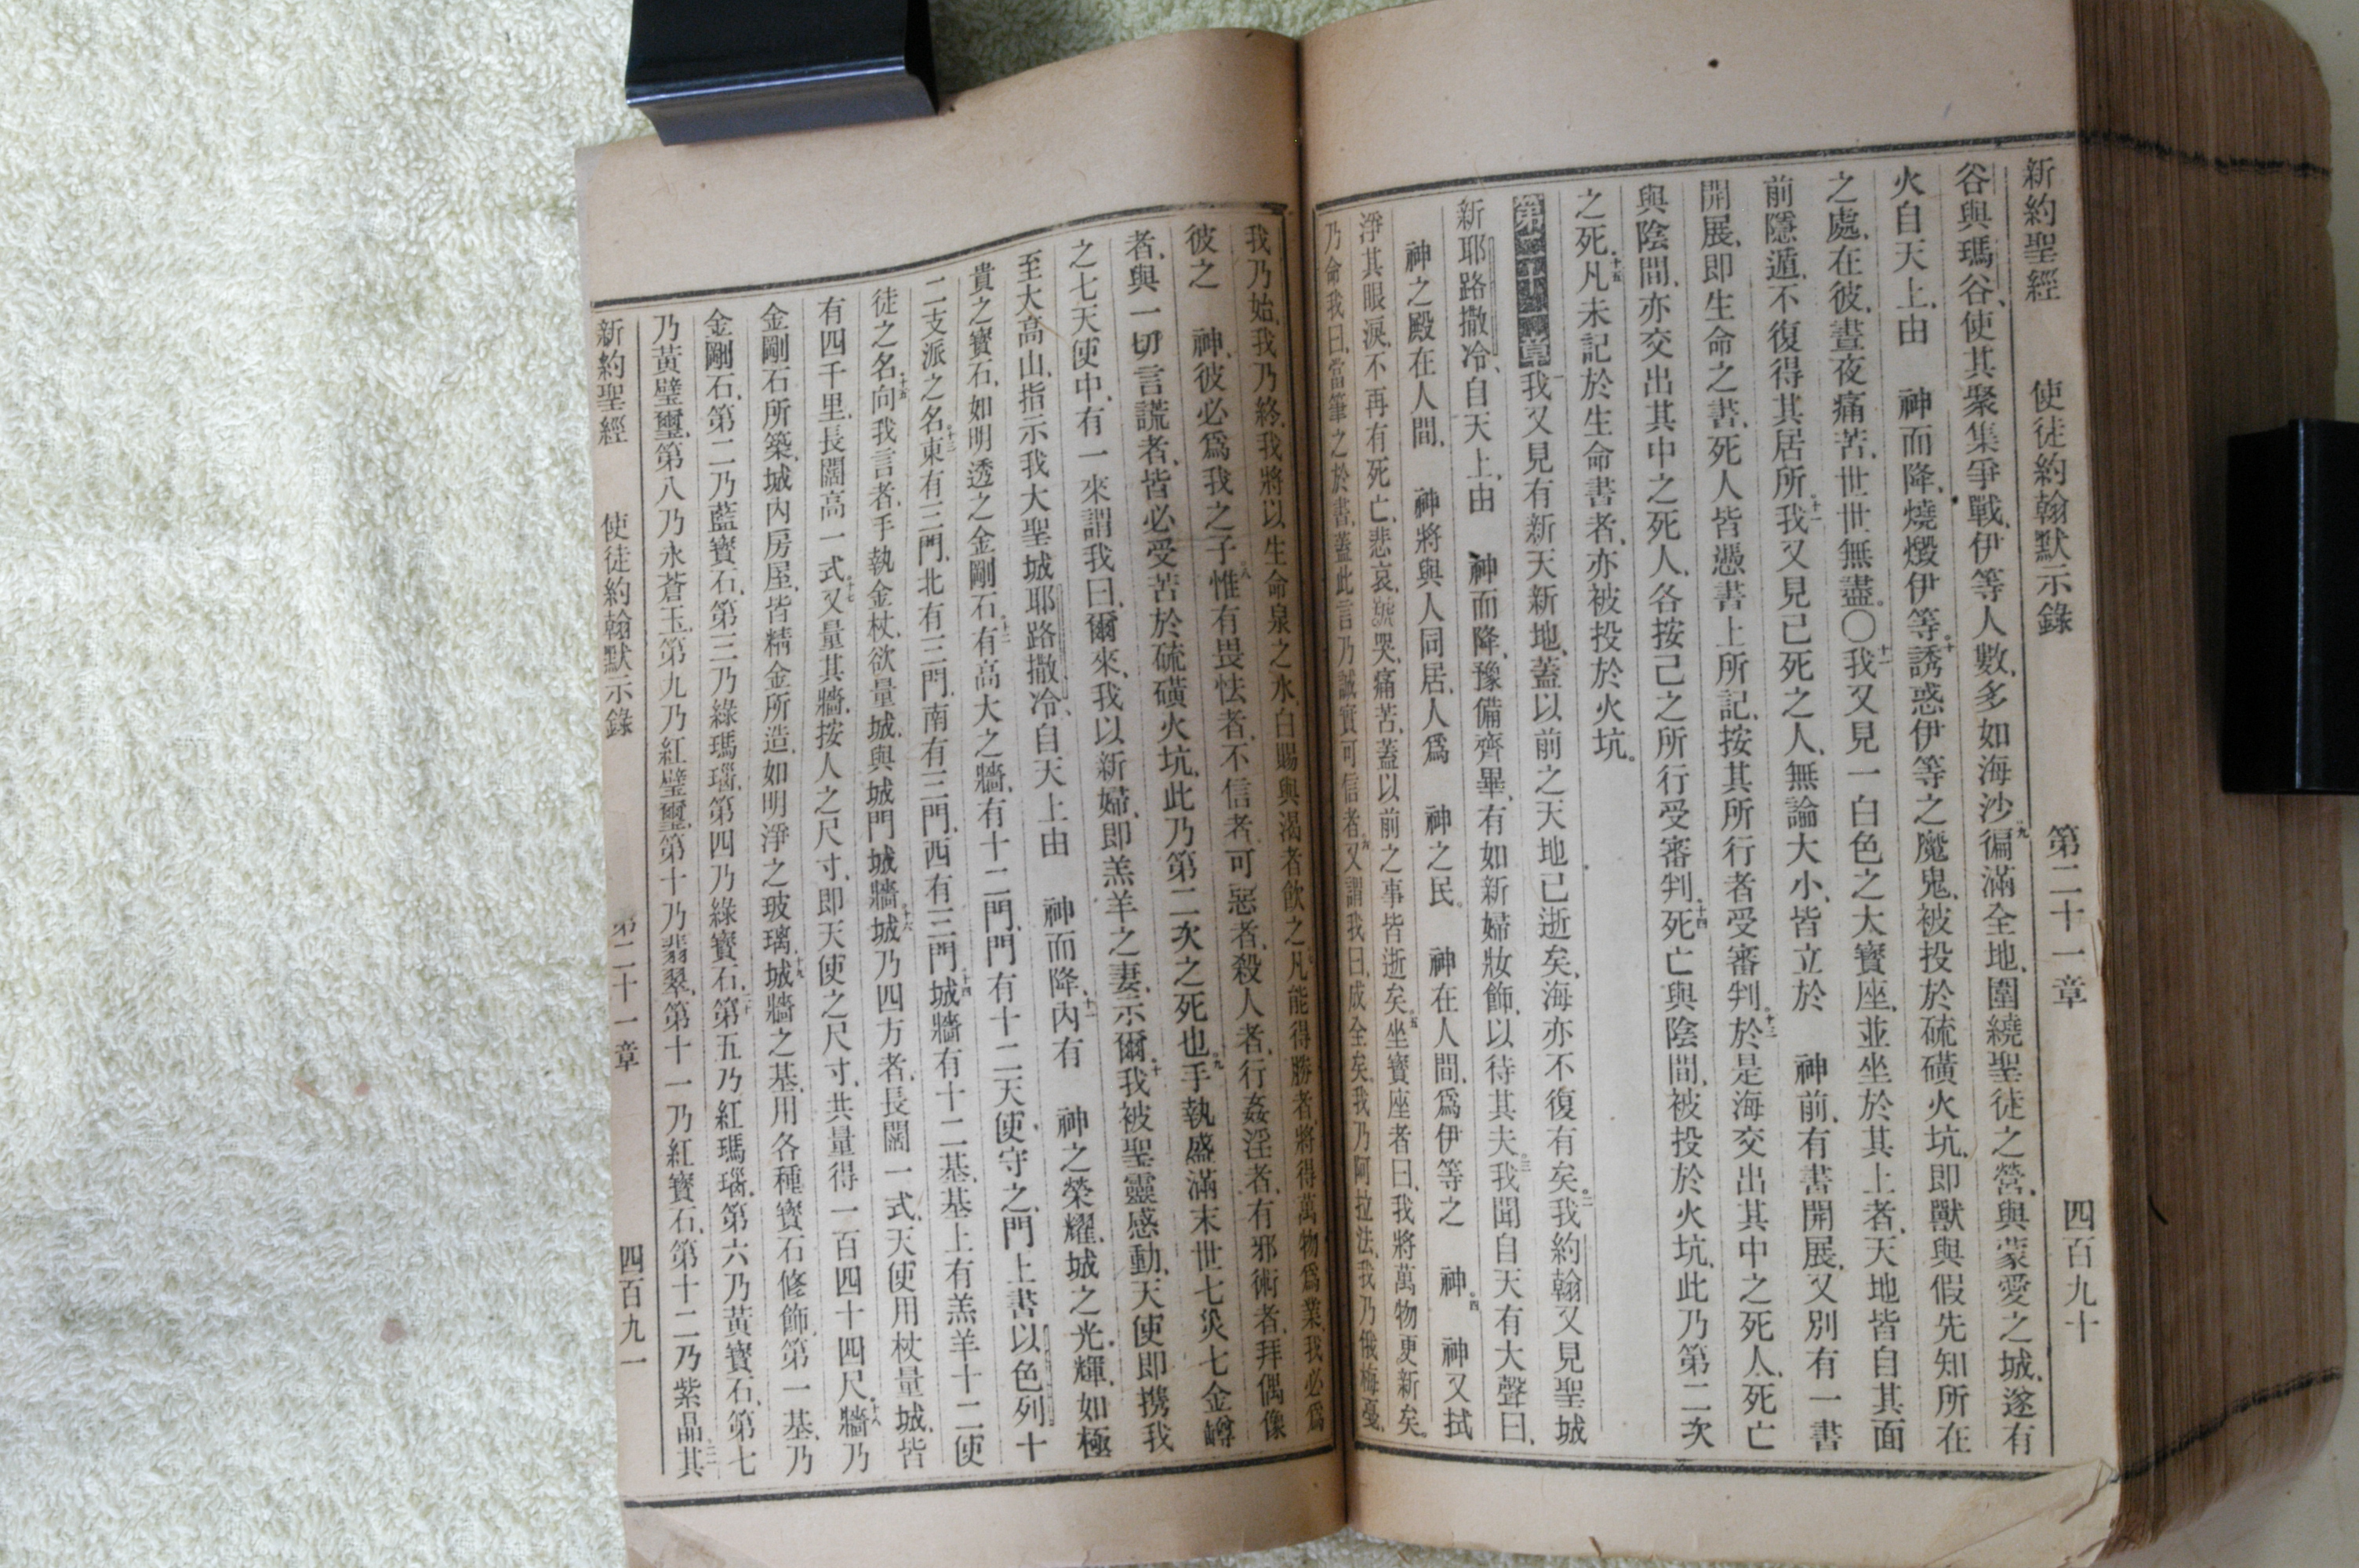 新約聖經 使徒約翰默示錄 第二十一章 四百九十
谷與瑪谷、使其聚集爭戰、伊等人數、多如海沙、九徧滿全地、圍繞聖徒之營、與蒙愛之城、遂有
火自天上、由 神而降、燒燬伊等、十誘惑伊等之魔鬼、被投於硫磺火坑、即獸與假先知所在
之處、在彼、晝夜痛苦、世世無盡。〇十一我又見一白色之大寶座、並坐於其上者、天地皆自其面
前隱遁、不復得其居所、十二我又見已死之人、無論大小、皆立於 神前、有書開展、又別有一書
開展、即生命之書、死人皆憑書上所記、按其所行者受審判、十三於是海交出其中之死人、死亡
與陰間、亦交出其中之死人、各按己之所行受審判、十四死亡與陰間、被投於火坑、此乃第二次
之死、十五凡未記於生命書者、亦被投於火坑。
第二十一章 一我又見有新天新地、蓋以前之天地已逝矣、海亦不復有矣、二我約翰又見聖城
新耶路撒冷、自天上、由 神而降、豫備齊畢、有如新婦妝飾、以待其夫、三我聞自天有大聲曰、
神之殿在人間、 神將與人同居、人爲 神之民。 神在人間、爲伊等之 神、四 神又拭
淨其眼淚、不再有死亡、悲哀、號哭、痛苦、蓋以前之事皆逝矣、五坐寶座者曰、我將萬物更新矣。
乃命我曰、當筆之於書、蓋此言乃誠實可信者、六又謂我曰、成全矣、我乃阿拉法、我乃俄梅戞、
我乃始、我乃終、我將以生命泉之水、白賜與渴者飲之、七凡能得勝者、將得萬物爲業、我必爲
彼之 神、彼必爲我之子、八惟有畏怯者、不信者、可惡者、殺人者、行姦淫者、有邪術者、拜偶像
者、與一切言謊者、皆必受苦於硫磺火坑、此乃第二次之死也、九手執盛滿末世七災七金罇
之七天使中、有一來謂我曰、爾來、我以新婦、即羔羊之妻、示爾、十我被聖靈感動、天使即携我
至大高山、指示我大聖城耶路撒冷、自天上由 神而降、十一內有 神之榮耀、城之光輝、如極
貴之寶石、如明透之金剛石、十二有高大之牆、有十二門、門有十二天使守之、門上書以色列十
二支派之名、十三東有三門、北有三門、南有三門、西有三門、十四城牆有十二基、基上有羔羊十二使
徒之名、十五向我言者、手執金杖、欲量城、與城門城牆、十六城乃四方者、長闊一式、天使用杖量城、皆
有四千里、長闊高一式、十七又量其牆、按人之尺寸、即天使之尺寸、共量得一百四十四尺、十八牆乃
金剛石所築、城內房屋、皆精金所造、如明淨之玻璃、十九城牆之基、用各種寶石修飾、第一基、乃
金剛石、第二乃藍寶石、第三乃綠瑪瑙、第四乃綠寶石、二十第五乃紅瑪瑙、第六乃黃寶石、第七
乃黃璧璽、第八乃水蒼玉、第九乃紅璧璽、第十乃翡翠、第十一乃紅寶石、第十二乃紫晶、二一其
新約聖經 使徒約翰默示錄 第二十一章 四百九一